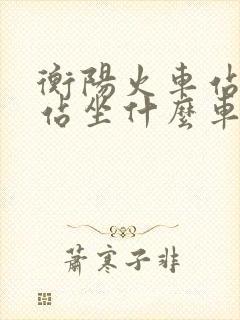 衡陽火車佔
佔坐什麼車
蕭寒子非